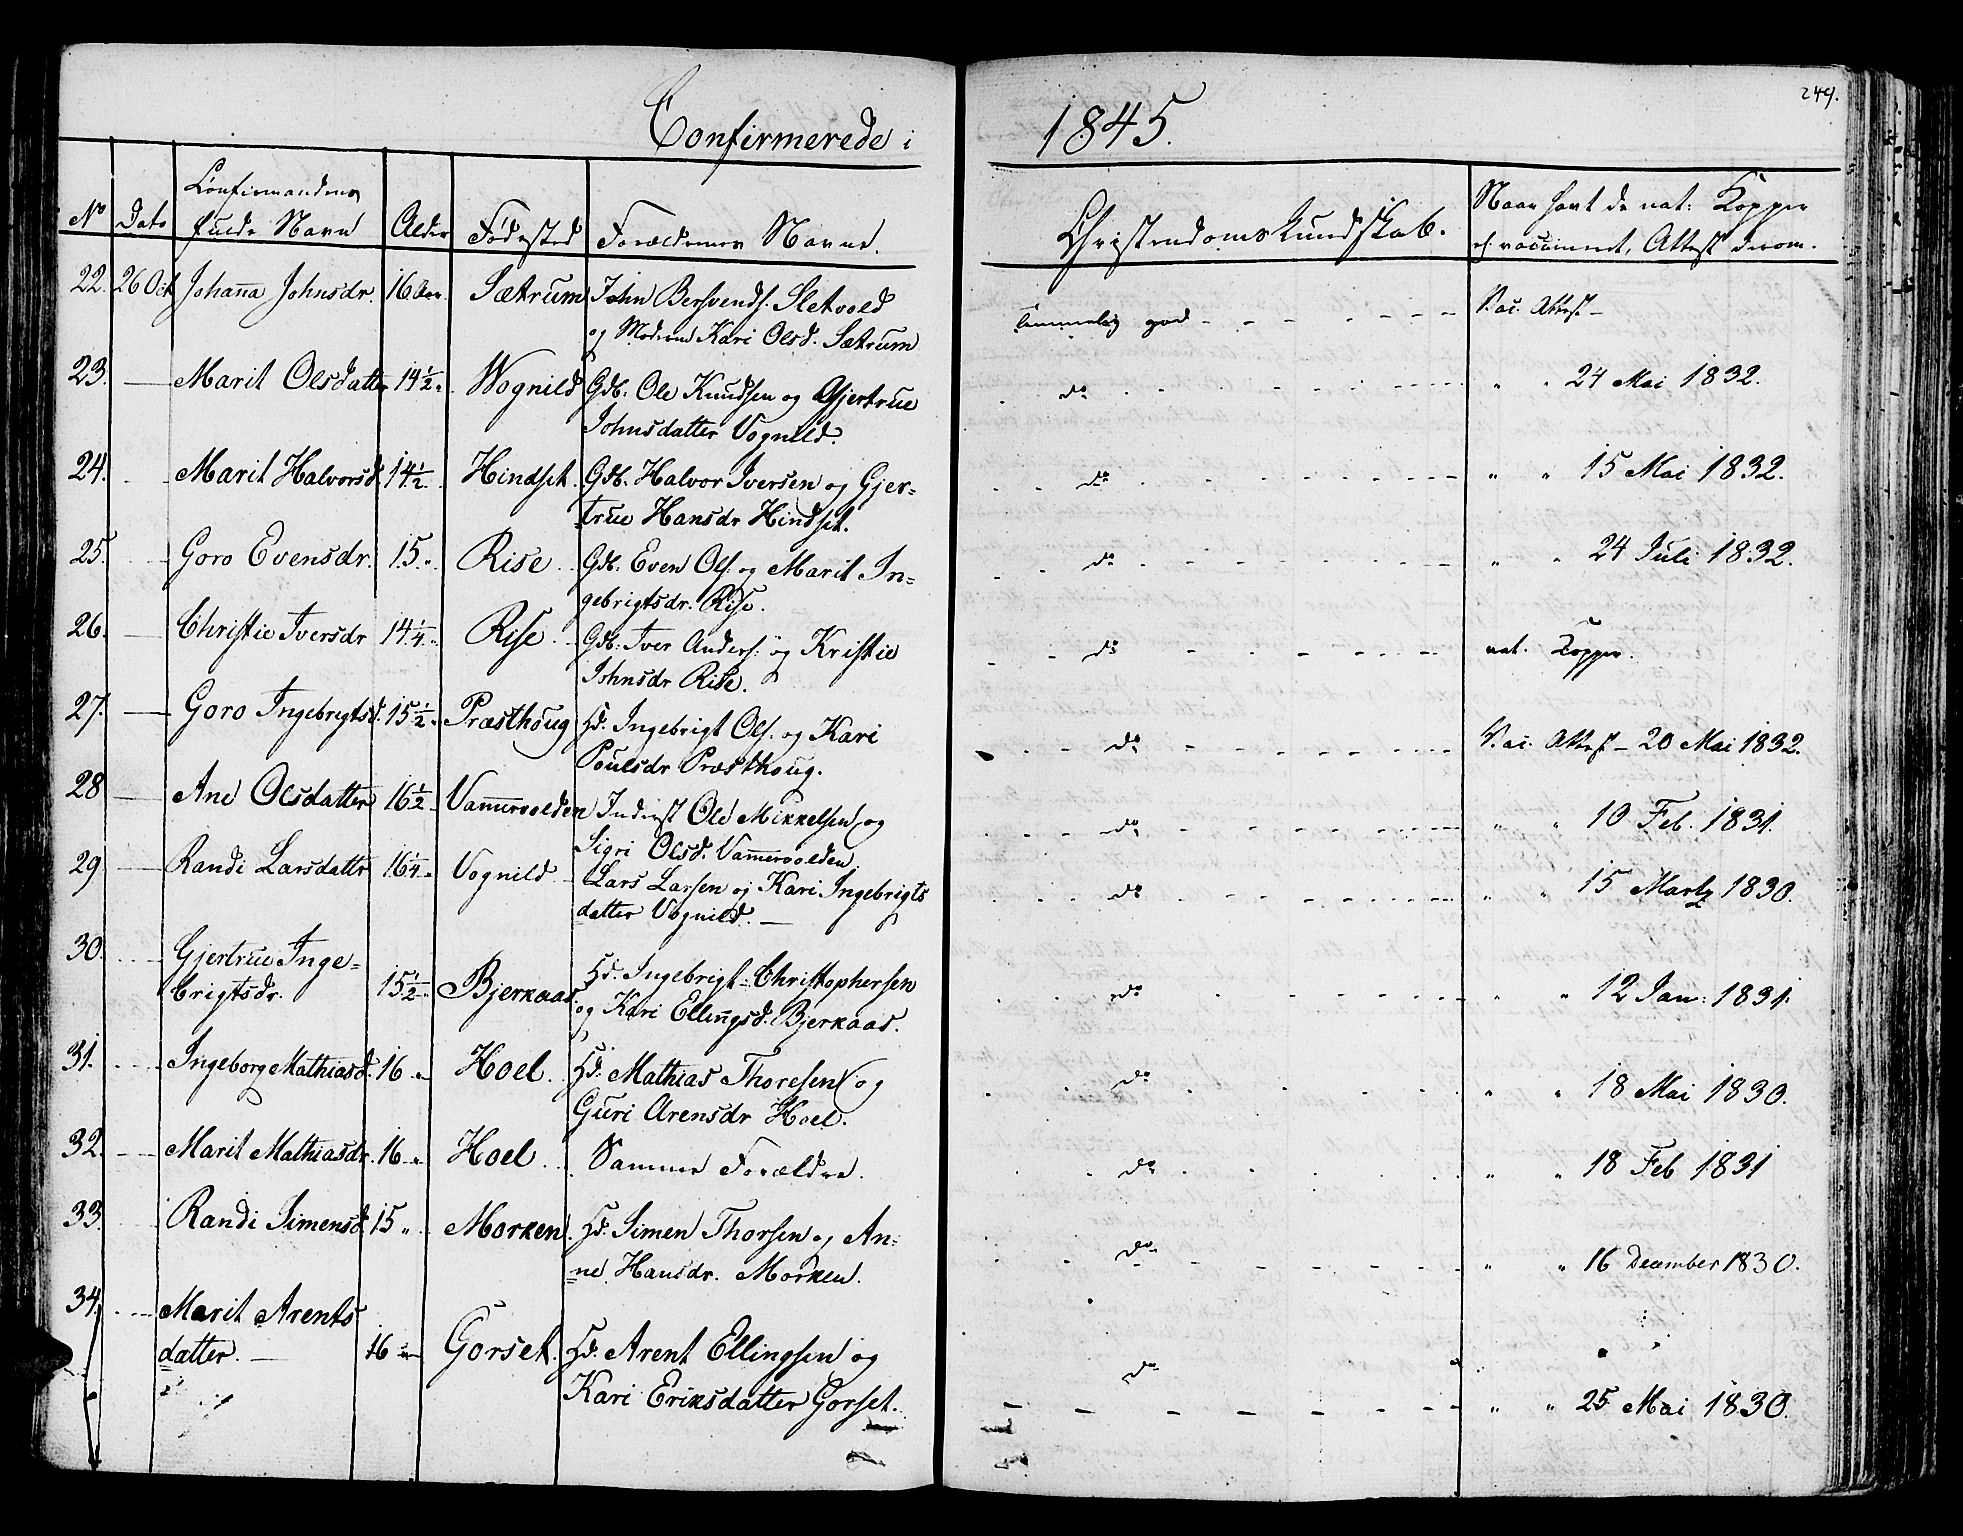 249.
Confirmerede i 1845.
No Dato Confirmandens fulde Navn Alder Fødested Forældrenes Navne. Christendomskundskab. Naar havt de nat: Kopper el. vaccineret, Attest derom.
22. 26 Oct Johanna Johnsdr. 16 Aar. Sætrum John Bersvends. Sletvold
og Moderen Kari Olsd. Sætrum temmelig god - - - - Vac. Attest -
23. - Marit Olsdatter 14½ „ Wognild Gdb. Ole Knudsen og Gjertrue
Johnsdatter Vognild. do - - - „ „ 24 Mai 1832.
24. - Marit Halvorsd. 14½ Hindset. Gdb. Halvor Iversen og Gjer=
true Hansdr Hindset. do - - - „ „ 15 Mai 1832.
25. - Goro Evensdr. 15 „ Rise Gdb. Even Ols. og Marit In=
gebrigtsdr. Rise. do - - - „ „ 24 Juli 1832.
26. - Christie Iversdr 14¼ „ Rise. Gdb. Iver Anders: og Kristie
Johnsdr Rise. do - - - nat. Kopper.
27. - Goro Ingebrigtsd. 15½ „ Præsthoug Hd. Ingebrigt Ols. og Kari
Poulsdr Præsthoug. do - - - Vac. Attest - 20 Mai 1832.
28 - Ane Olsdatter 16½ Vammervolden Inderst Ole Mikkelsen og
Sigri Olsd. Vammervolden do - - - „ „ 10 Feb. 1831.
29 - Randi Larsdattr 16¼ „ Vognild Lars Larsen og Kari Ingebrigts
datter Vognild. - do - - - „ „ 15 Martz 1830.
30. - Gjertrue Inge=
brigtsdr. 15½ „ Bjerkaas Hd. Ingebrigt Christophersen
og Kari Ellingsd. Bjerkaas. do - - - „ „ 12 Jan: 1831.
31. - Ingeborg Mathiasd. 16 „ Hoel Hd. Mathias Thoresen og
Guri Arensdr Hoel. do - - - „ „ 18 Mai 1830.
32. - Marit Mathiasdr. 16 „ Hoel Samme Forældre. do - - - „ „ 18 Feb 1831
33. - Randi Simensd. 15 „ Morken Hd. Simen Thorsen og An=
ne Hansdr. Morken. do - - - „ „ 16 December 1830.
34. - Marit Arents
datter. - 16 „ Gorset. Hd. Arent Ellingsen og
Kari Eriksdatter Gorset. do - - - „ „ 25 Mai 1830.